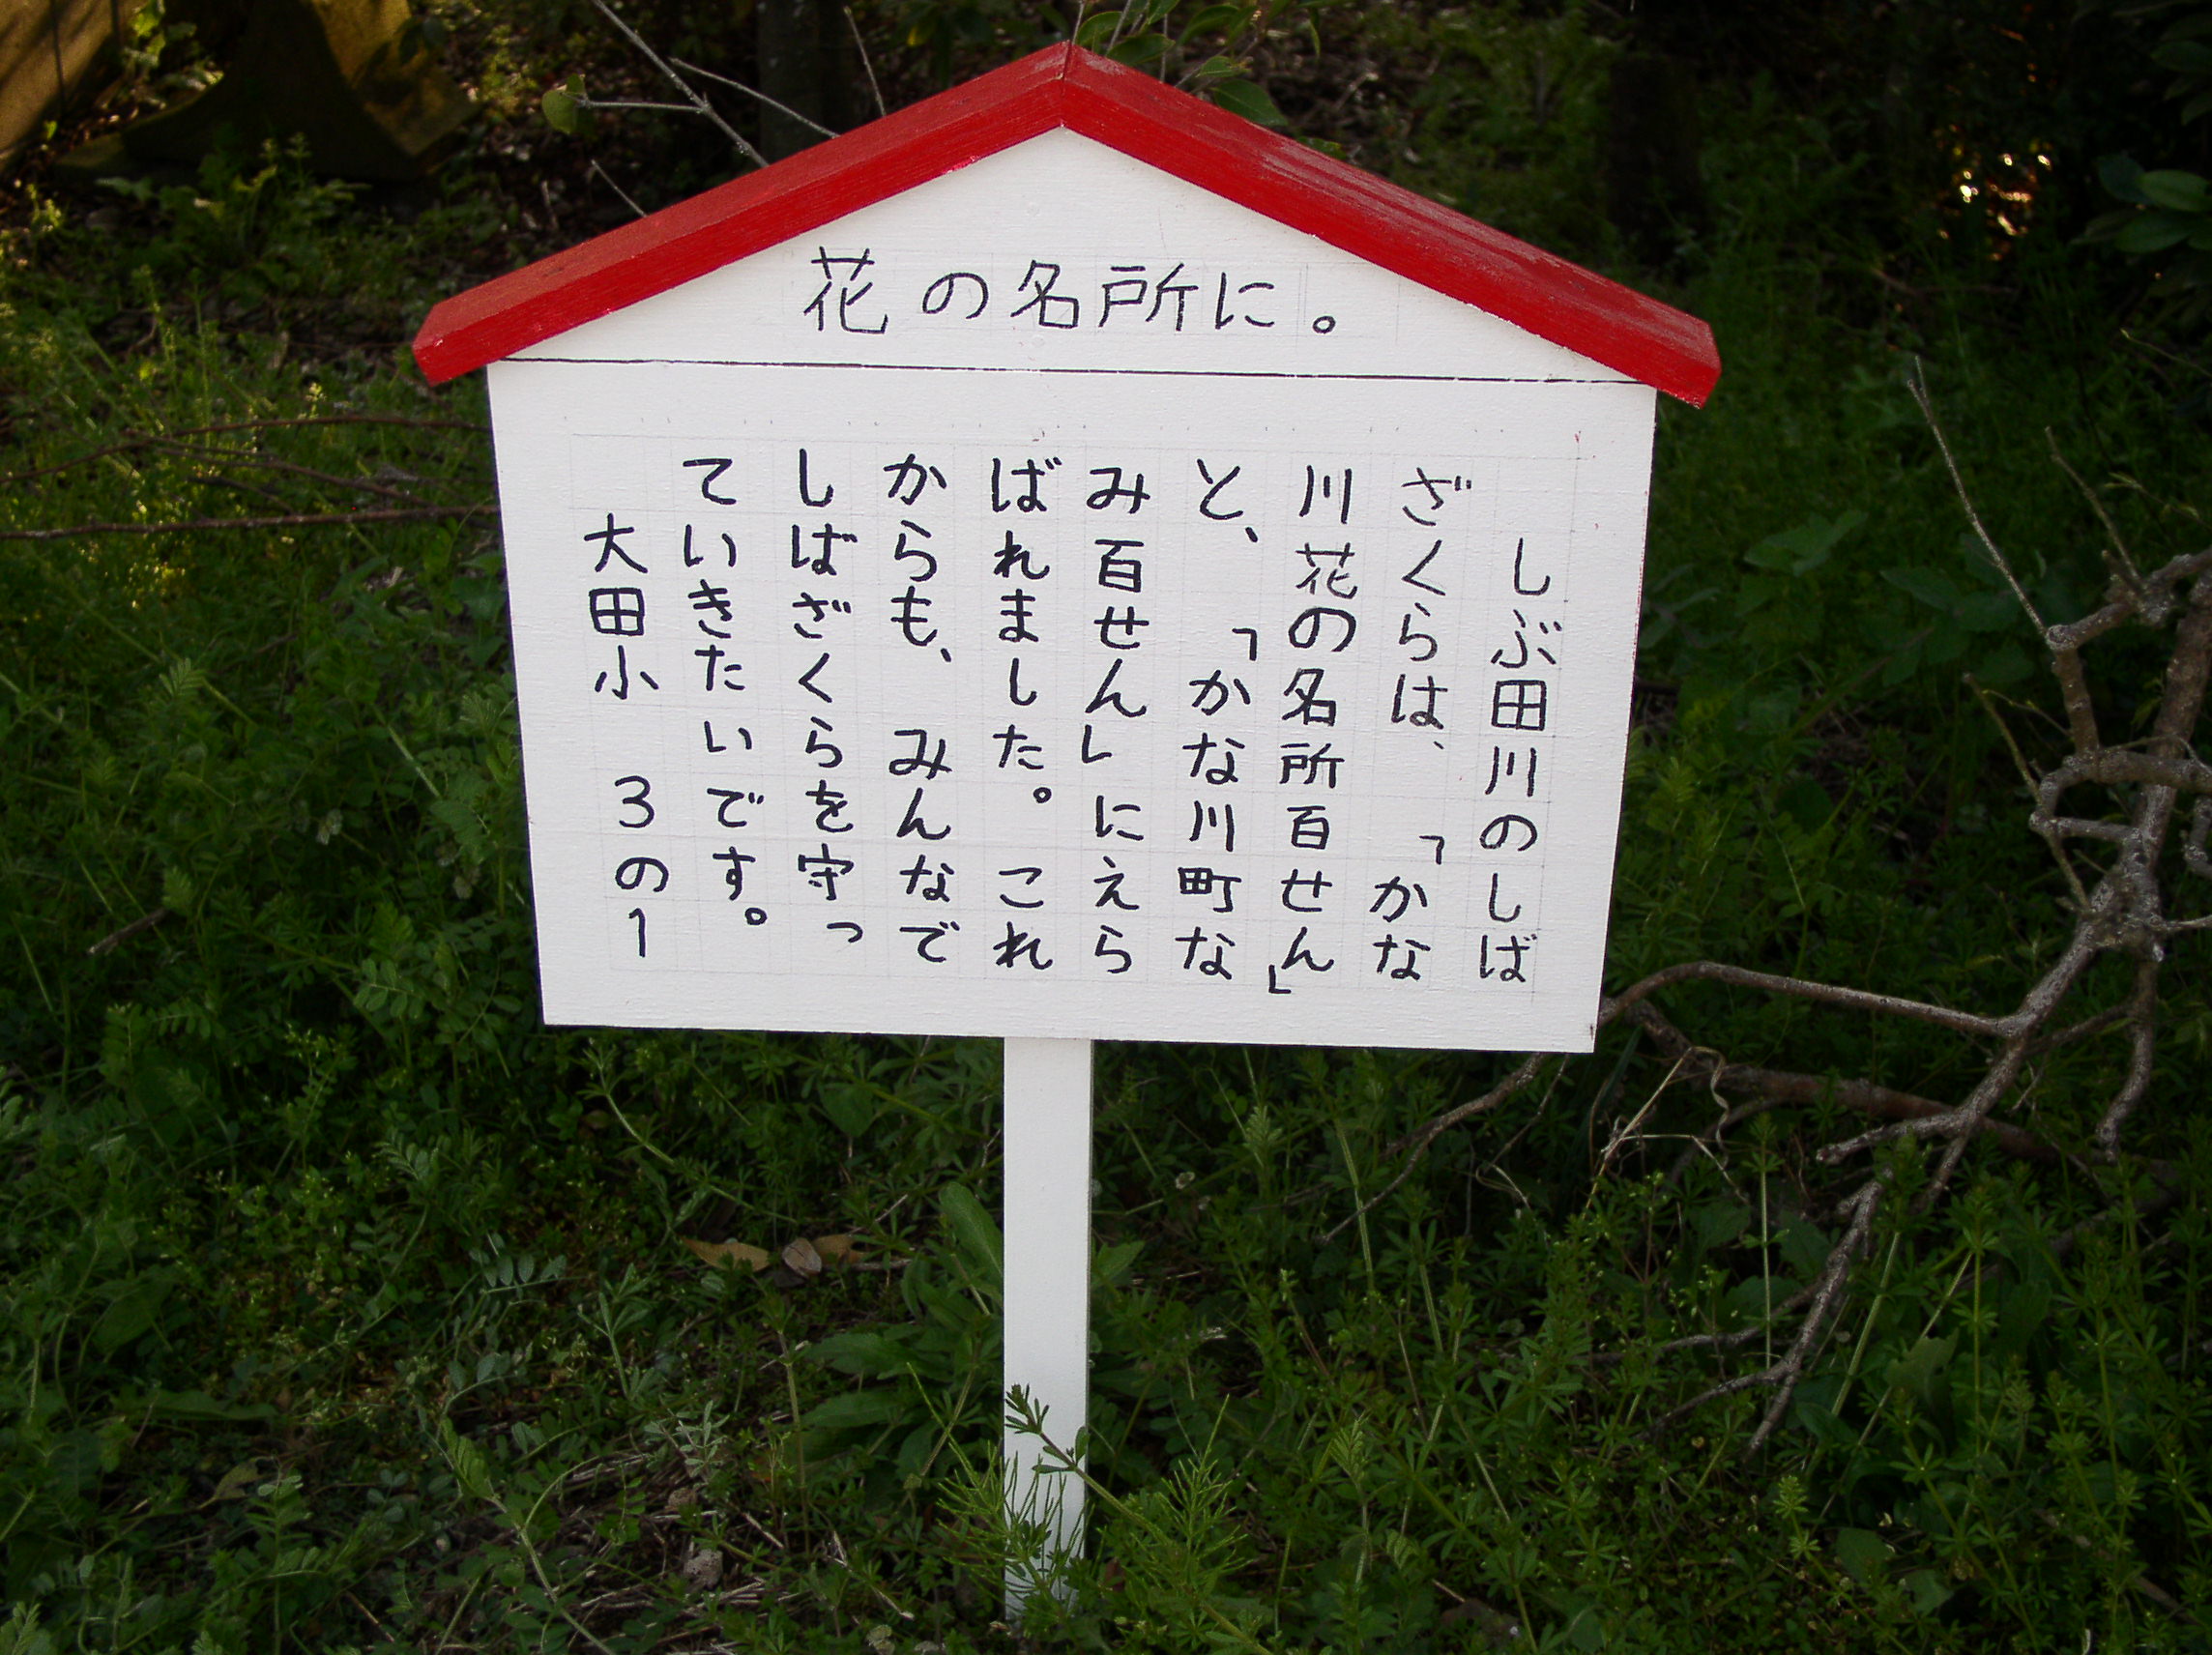 花の名所に。
しぶ田川のしば
ざくらは、「かな
川花の名所百せん」
と、「かな川町な
み百せん」にえら
ばれました。これ
からも、みんなで
しばざくらを守っ
ていきたいです。
大田小 3の1